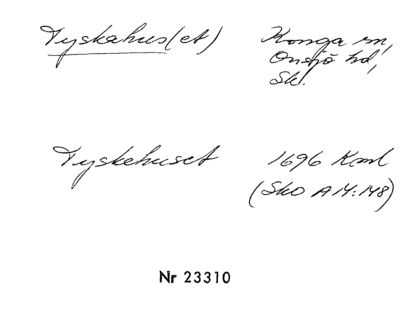 Tyskahus(et)
Konga sn,
Onsjö hd,
Sk.
Tyskehuset
1696 Kml
(Sko A 14:148)
Nr 23310